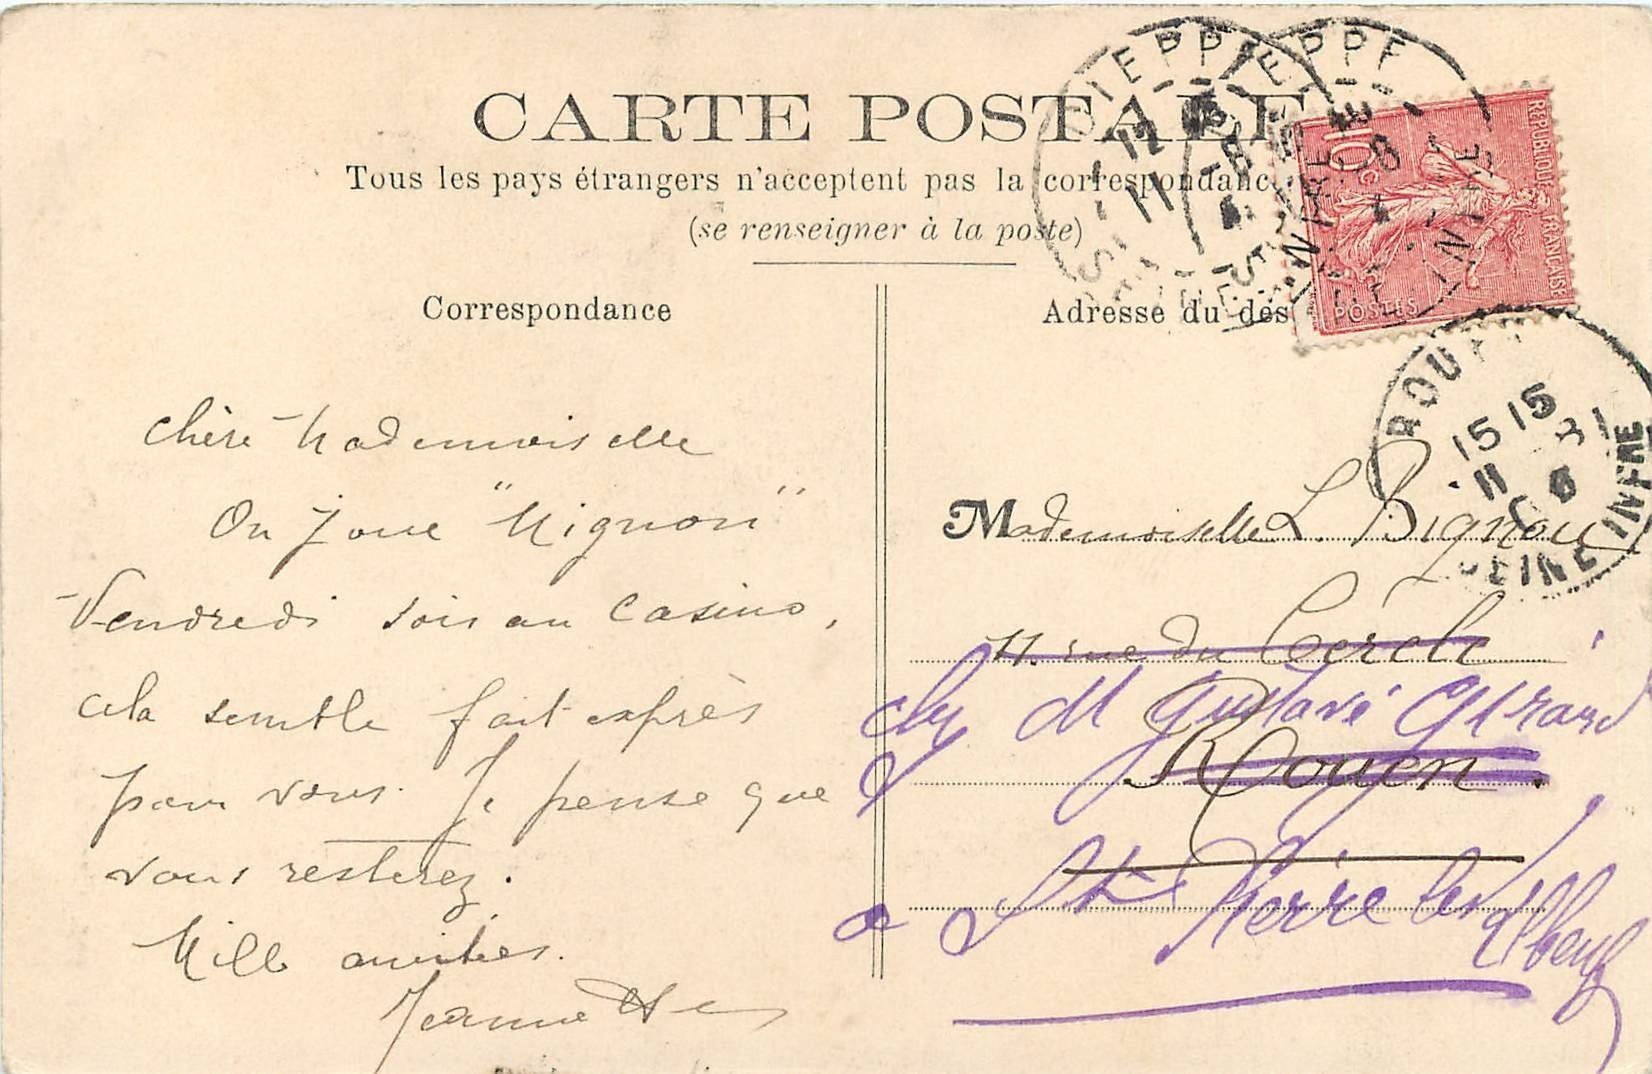 CARTE POSTALE
Tous les pays étrangers n'acceptent pas la correspondance
(se renseigner à la poste)
Correspondance
Adresse du des
DIEPPE
DIEPPE
10c
REPUBLIQUE FRANÇAISE
POSTES
ROUEN
15 15
11 8
SEINE INFRE
Chère Mademoiselle
On joue "Mignon"
Vendredi soir au Casino,
cela semble fait exprès
pour vous. Je pense que
vous resterez.
Mille amitiés.
Jeanne
Mademoiselle L. Bignou
11. rue du Cercle
chez M Gustave Gérard
Rouen.
a St Pierre les Elbeuf